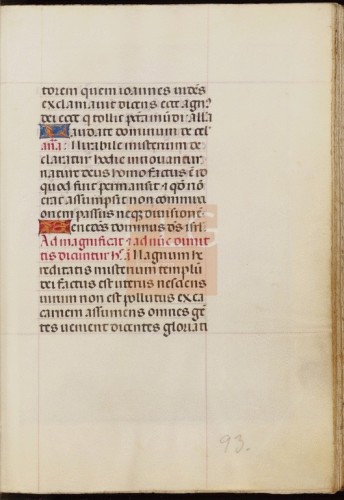 torem quem ioannes uidēs
exclamauit dicens ecce agn9
dei ecce q tollit pc̄ta mūdi: alla
Laudate dominum de cel
aña: Mirabile misterium de
claratur hodie innouantur
nature deus homo factus ē id
quod fuit permansit et qđ nō
erat assumpsit non commixti
onem passus neqz diuisionē
Benedc̄s dominus ds̄ isrl.
Ad magnificat et ad nūc dimit
tis dicuntur Magnum he
reditatis misterium templū
dei factus est uterus nesciens
uirum non est pollutus ex ea
carnem assumens omnes gē
tes uenient dicentes gloria ti
93.